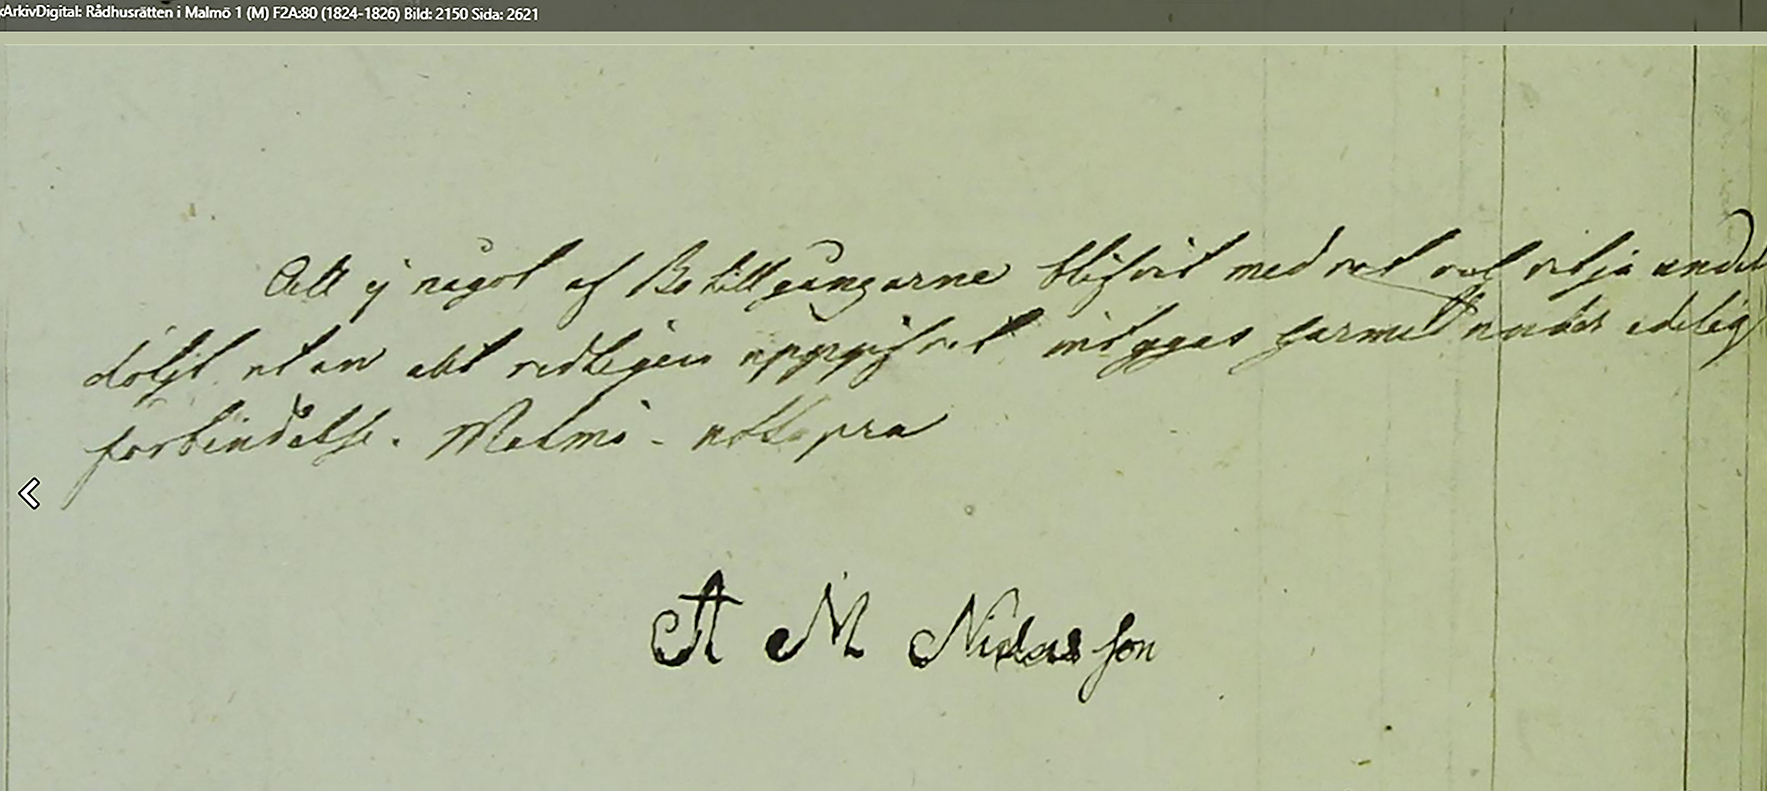 ArkivDigital: Rådhusrätten i Malmö 1 (M) F2A:80 (1824-1826) Bild: 2150 Sida: 2621
Att ej något af Bo tillgångarne blifvit med vet och vilja undan
döljt utan allt redligen uppgifvit intygas härmed under edelig
förbindelse. Malmö utsupra
A M Niclasson